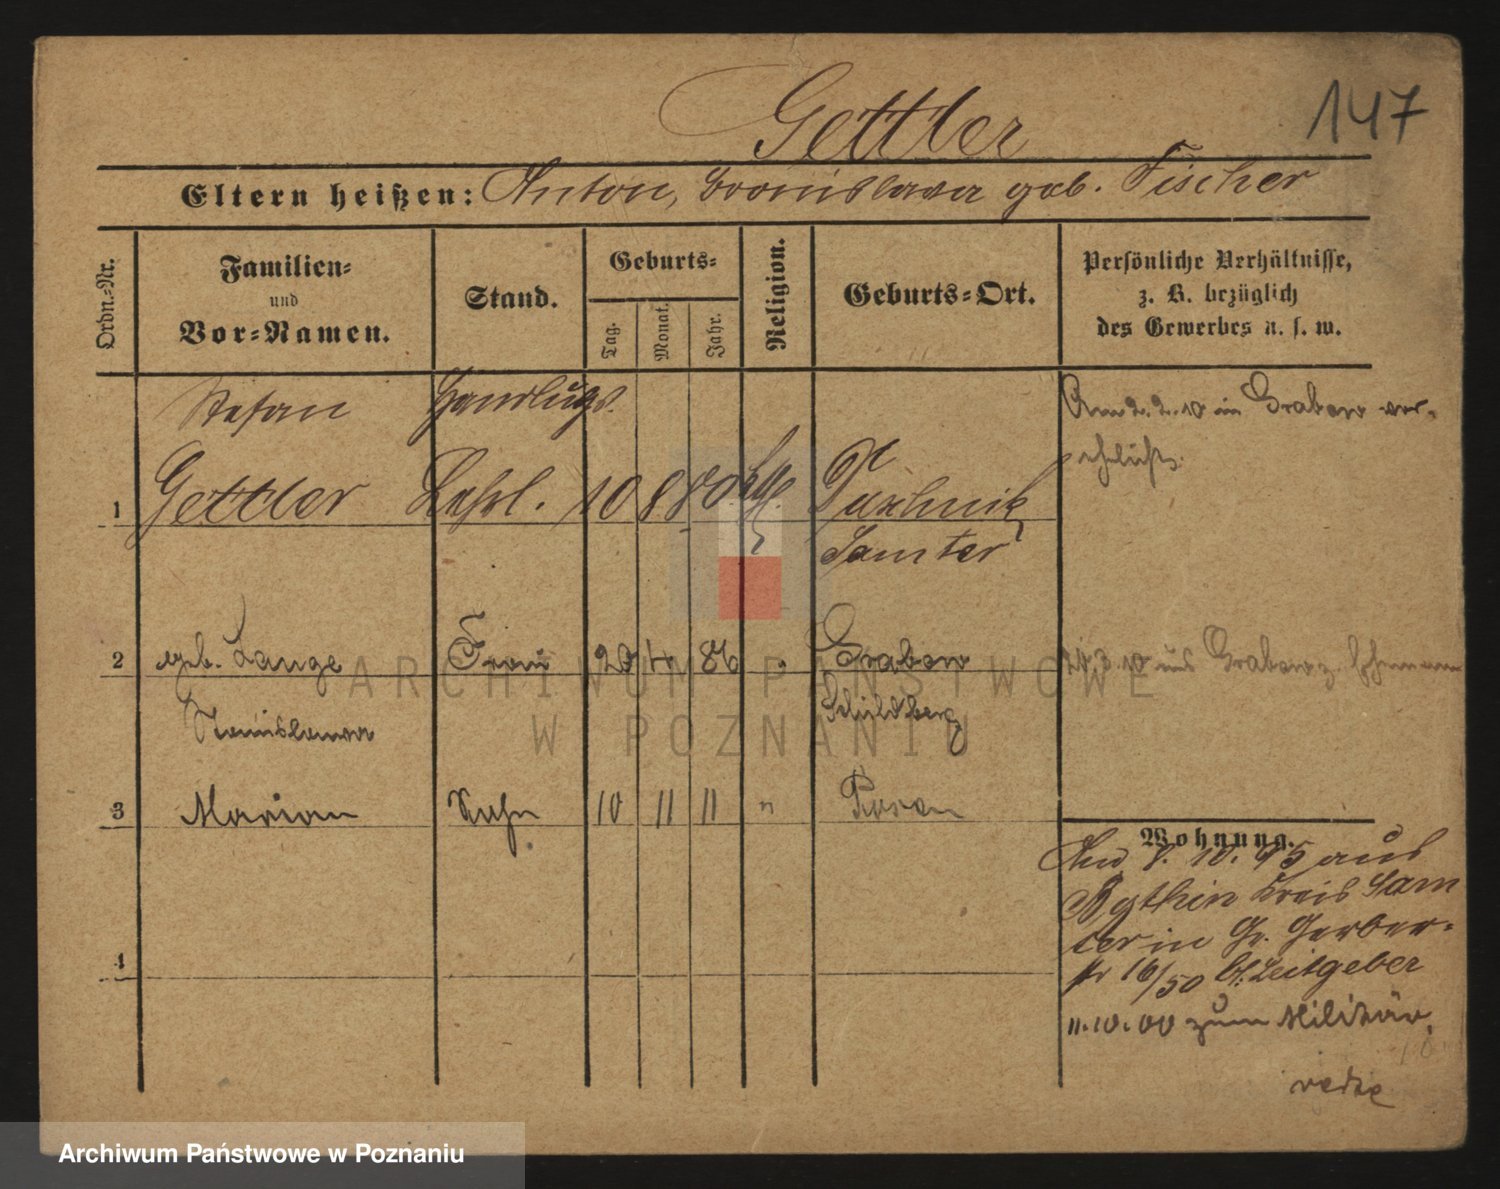 147
Gettler
Eltern heißen: Anton, Bronislawa geb. Fischer
Ordn.-Nr.
Familien-
und
Vor-Namen.
Stand.
Geburts-
Tag.
Monat.
Jahr.
Religion.
Geburts-Ort.
Persönliche Verhältnisse,
z. B. bezüglich
des Gewerbes u. s. w.
Stefan
Gettler
1
Handlugs.
Lehrl.
10 8 80 kth.
Samter
Am 2.2.10 in Grabow ver-
ehelicht.
2
geb. Lange
Stanislawa
Frau
20 4 86 "
Grabow
Schildberg
aus Grabow z. Ehemann
3 Marian Sohn 10 11 11 " Posen
4
Wohnung.
Am 8. 10. 95 aus
Kreis Sam
ter in Gr. Gerber-
str 16/50 b. Leitgeber
11.10.00 zum Militär.
ARCHIWUM PAŃSTWOWE
W POZNANIU
Archiwum Państwowe w Poznaniu